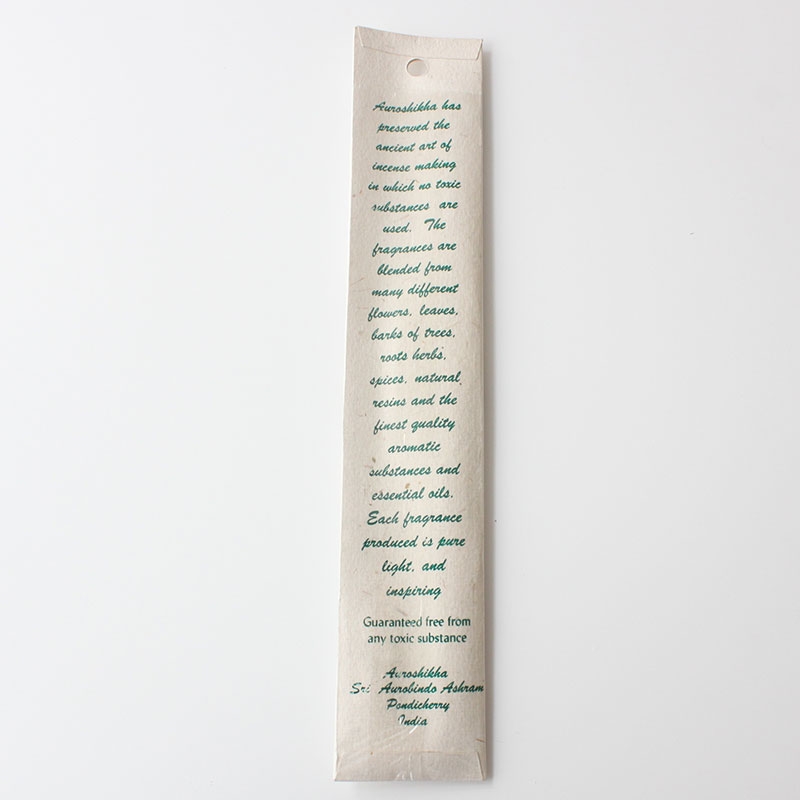 Auroshikha has
preserved the
ancient art of
incense making
in which no toxic
substances are
used. The
fragrances are
blended from
many different
flowers, leaves,
barks of trees,
roots herbs,
spices, natural
resins and the
finest quality
aromatic
substances and
essential oils.
Each fragrance
produced is pure
light, and
inspiring
Guaranteed free from
any toxic substance
Auroshikha
Sri Aurobindo Ashram
Pondicherry
India